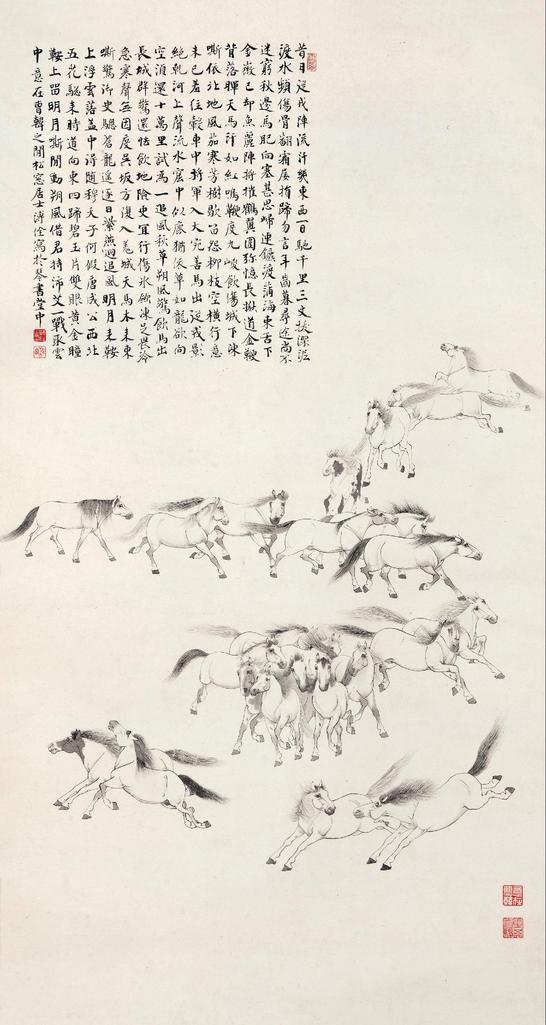 昔日從戎陣流汗幾東西一日馳千里三丈拔深泥
渡水頻傷骨翻霜屢損蹄勿言年齒暮尋途尚不
迷窮秋邊馬肥向塞甚思歸連鑣渡蒲海束舌下
金微已卻魚麗陣將摧鶴翼圍彌憶長楸道金鞭
背落暉天馬汗如紅鳴鞭度九嵕飲傷城下凍
嘶依北地風茄寒芳樹歇笛怨柳枝空橫行意
未已羞住轂車中將軍入大宛善馬出從戎影
絕乾河上聲流水窟中似鹿猶依草如龍欲向
空須還十萬里試為一追風秋草朔風驚飲馬出
長城群驚還怯飲地險更宜行傷冰歛凍足畏冷
急寒聲無因度吳坂方復入羌城天馬本來東
嘶驚御史驄蒼龍遙逐日紫燕迥追風明月來鞍
上浮雲落蓋中得隨穆天子何假唐成公西北
五花驄來時道向東四蹄碧玉片雙眼黃金瞳
鞍上留明月嘶間動朔風借君持沛艾一戰取雲
中 意在曹韓之間松窗居士溥佺寫於琴書堂中